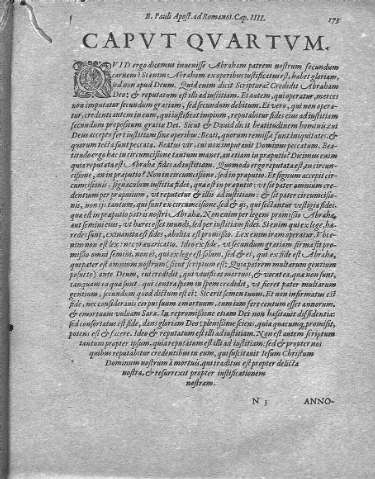 B. Pauli Apost. ad Romanos. Cap. IIII. 175
CAPUT QVARTVM.
QVID ergo dicemus invenisse Abraham patrem nostrum secundum
carnem? Si enim Abraham ex operibus iustificatus est, habet gloriam,
sed non apud Deum. Quid enim dicit Scriptura? Credidit Abraham
Deo: & reputatum est illi ad iustitiam. Ei autem, qui operatur, merces
non imputatur secundum gratiam, sed secundum debitum. Ei vero, qui non opera-
tur, credenti autem in eum, qui iustificat impium, reputabitur fides eius ad iustitiam
secundum propositum gratiæ Dei. Sicut & David dicit beatitudinem hominis: cui
Deus accepto fert iustitiam sine operibus: Beati, quorum remissæ sunt iniquitates: &
quorum tecta sunt peccata. Beatus vir, cui non imputavit Dominus peccatum. Bea-
titudo ergo hæc in circumcisione tantum manet, an etiam in præputio? Dicimus enim
quia reputata est Abrahæ fides ad iustitiam. Quomodo ergo reputata est, in circumci-
sione, an in præputio? Non in circumcisione, sed in præputio. Et signum accepit cir-
cumcisionis, signaculum iustitiæ fidei, quæ est in præputio: ut sit pater omnium cre-
dentium per præputium, ut reputetur & illis ad iustitiam: & sit pater circumcisio-
nis, non iis tantum, qui sunt ex circumcisione, sed & iis, qui sectantur vestigia fidei,
quæ est in præputio patris nostri Abrahæ. Non enim per legem promissio Abrahæ,
aut semini eius, ut hæres esset mundi, sed per iustitiam fidei. Si enim qui ex lege, hæ-
redes sunt, exinanita est fides, abolita est promissio. Lex enim iram operatur. Ubi e-
nim non est lex: nec prævaricatio. Ideo ex fide, ut secundum gratiam firma sit pro-
missio omni semini, non ei, qui ex lege est solum, sed & ei, qui ex fide est Abrahæ,
qui pater est omnium nostrum, (sicut scriptum est: Quia patrem multarum gentium
posui te) ante Deum, cui credidit, qui vivificat mortuos, & vocat ea, quæ non sunt,
tanquam ea quæ sunt: qui contra spem in spem credidit, ut fieret pater multarum
gentium, secundum quod dictum est ei: Sic erit semen tuum. Et non infirmatus est
fide, nec consideravit corpus suum emortuum, cum iam fere centum esset annorum,
& emortuam vulvam Saræ. In repromissione etiam Dei non hæsitavit diffidentia:
sed confortatus est fide, dans gloriam Deo: plenissime sciens, quia quæcunq; promisit,
potens est & facere. Ideo & reputatum est illi ad iustitiam. Non est autem scriptum
tantum propter ipsum, quia reputatum est illi ad iustitiam: sed & propter nos
quibus reputabitur credentibus in eum, qui suscitavit Iesum Christum
Dominum nostrum à mortuis, qui traditus est propter delicta
nostra, & resurrexit propter iustificationem
nostram.
N 3 ANNO-